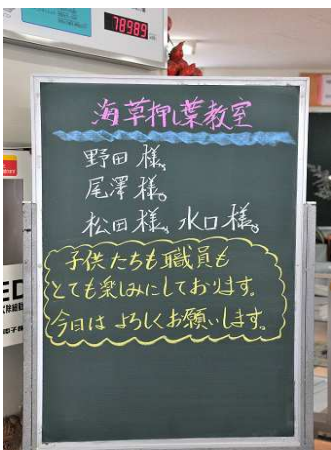 78989
海草押し葉教室
野田様。
尾澤様。
松田様、水口様。
子供たちも職員も
とても楽しみにしております。
今日はよろしくお願いします。
ED